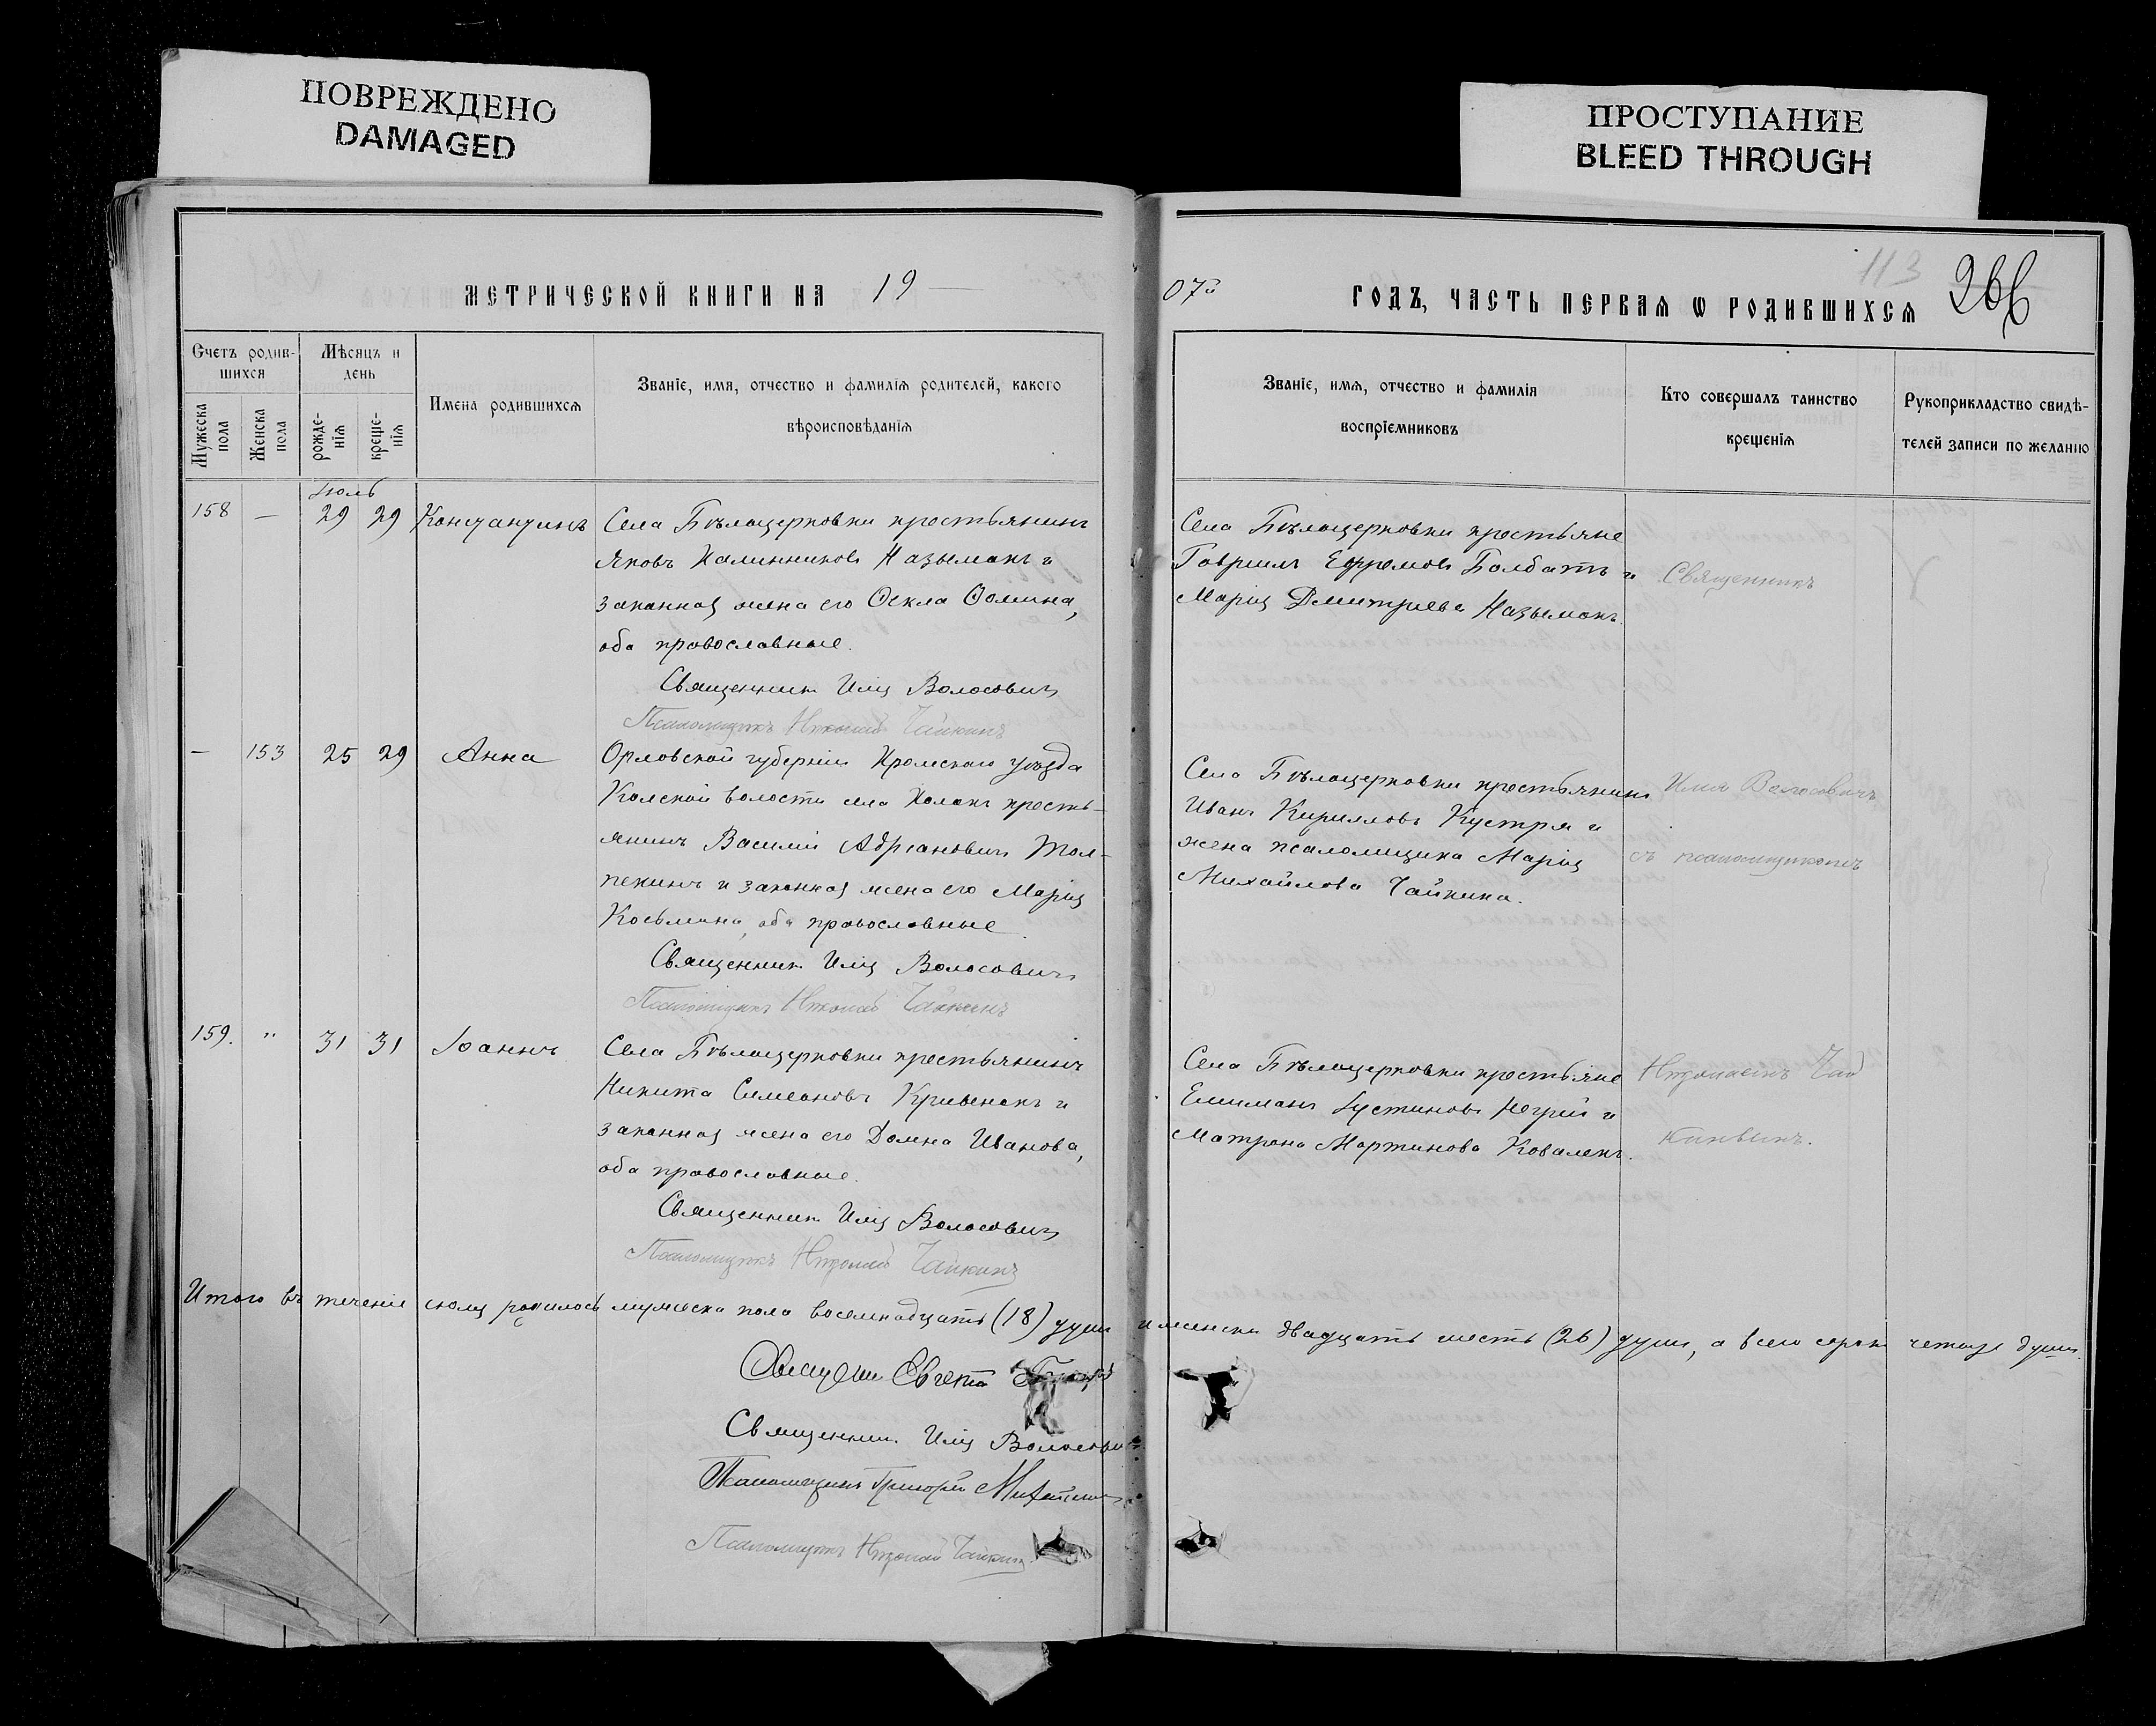 ПОВРЕЖДЕНО
DAMAGED
ПРОСТУПАНИЕ
BLEED THROUGH
МЕТРИЧЕСКОЙ КНИГИ НА 19
Счетъ родив-
шихся
Мѣсяцъ и
день
Мужеска
пола
Женска
пола
рожде-
нія
креще-
нія
Имена родившихся
Званіе, имя, отчество и фамилія родителей, какого
вѣроисповѣданія
Іюль
158 — 29 29 Константинъ
Села Бѣлоцерковки крестьянинъ
Яковъ Калинниковъ Назымокъ и
законная жена его Ѳекла Ѳомина,
оба православные.
Священникъ Илія Волосовичъ
Псаломщикъ Николай Чайкинъ
— 153 25 29 Анна
Орловской губерніи Кромскаго уѣзда
волости села крестья-
янинъ Василій Адріановичъ Тол-
пекинъ и законная жена его Марія
Косьмина, оба православные.
Священникъ Илія Волосовичъ
Псаломщикъ Николай Чайкинъ
159. " 31 31 Іоаннъ
Села Бѣлоцерковки крестьянинъ
Никита Симеоновъ Кривенокъ и
законная жена его Домна Иванова,
оба православные.
Священникъ Илія Волосовичъ
Псаломщикъ Николай Чайкинъ
Итого въ теченіе іюля родилось мужеска пола восемнадцать (18) душъ и женска двадцать шесть (26) душъ, а всего сорокъ четыре души.
Священникъ
Священникъ Илія Волосовичъ
Псаломщикъ Григорій
Псаломщикъ Николай Чайкинъ
113
266
07й ГОДЪ, ЧАСТЬ ПЕРВАЯ Ѡ РОДИВШИХСЯ
Званіе, имя, отчество и фамилія
воспріемниковъ
Кто совершалъ таинство
крещенія
Рукоприкладство свидѣ-
телей записи по желанію
Села Бѣлоцерковки крестьяне
Гавріилъ Ефремовъ Болбатъ и
Марія Дмитріева Назымокъ.
Священникъ
Села Бѣлоцерковки крестьянинъ
Иванъ Кирилловъ Кустря и
жена псаломщика Марія
Михайлова Чайкина.
Илія Волосовичъ
съ псаломщикомъ
Села Бѣлоцерковки крестьяне
Іустиновъ Негрій и
Матрона Мартинова Коваленк.
Николаемъ Чай
кинымъ.